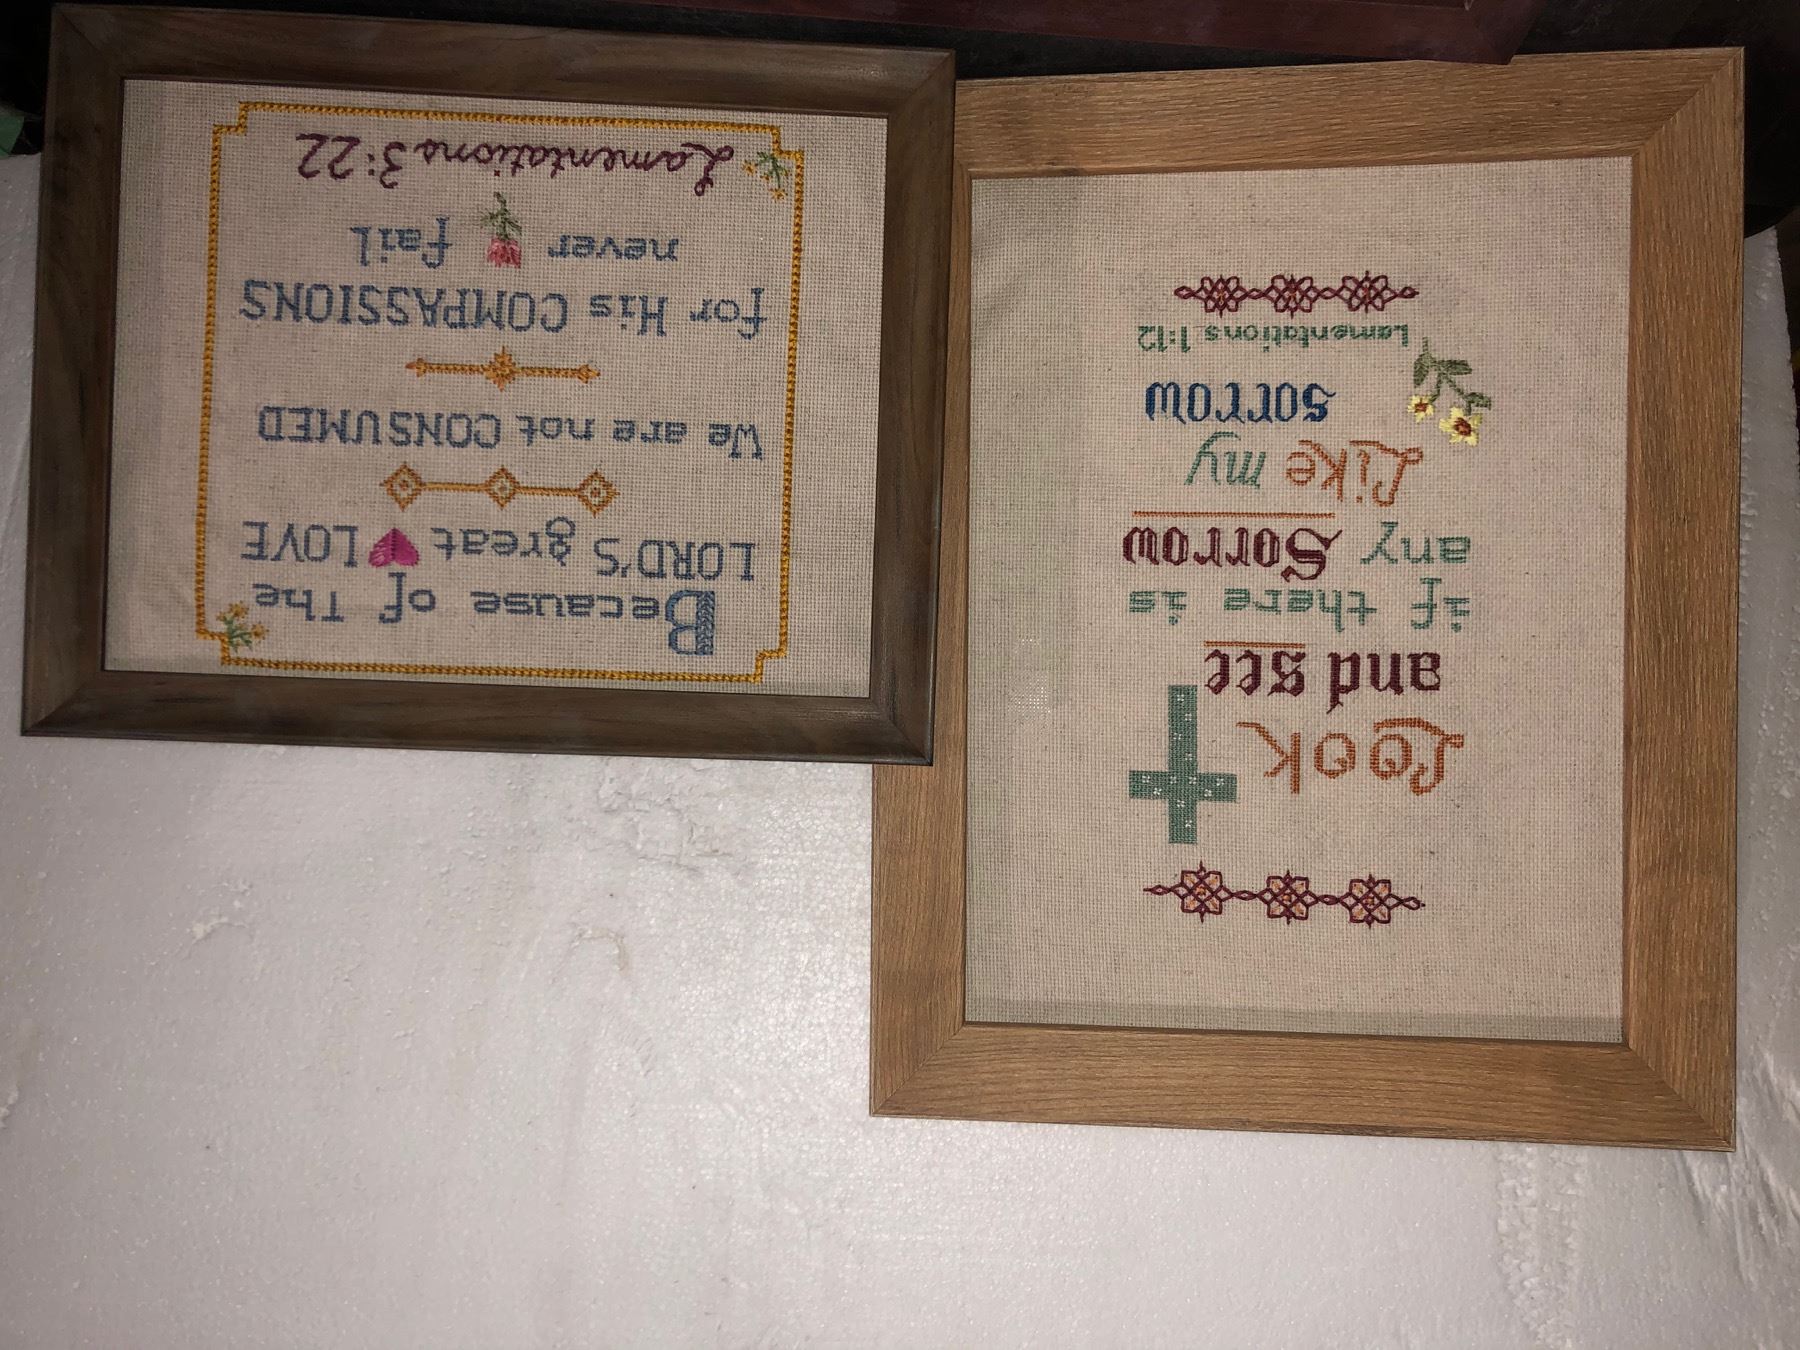 Look
and see
if there is
any Sorrow
Like my
sorrow
Lamentations 1:12
Because of The
LORD'S great LOVE
We are not CONSUMED
for His COMPASSIONS
never fail
Lamentations 3:22